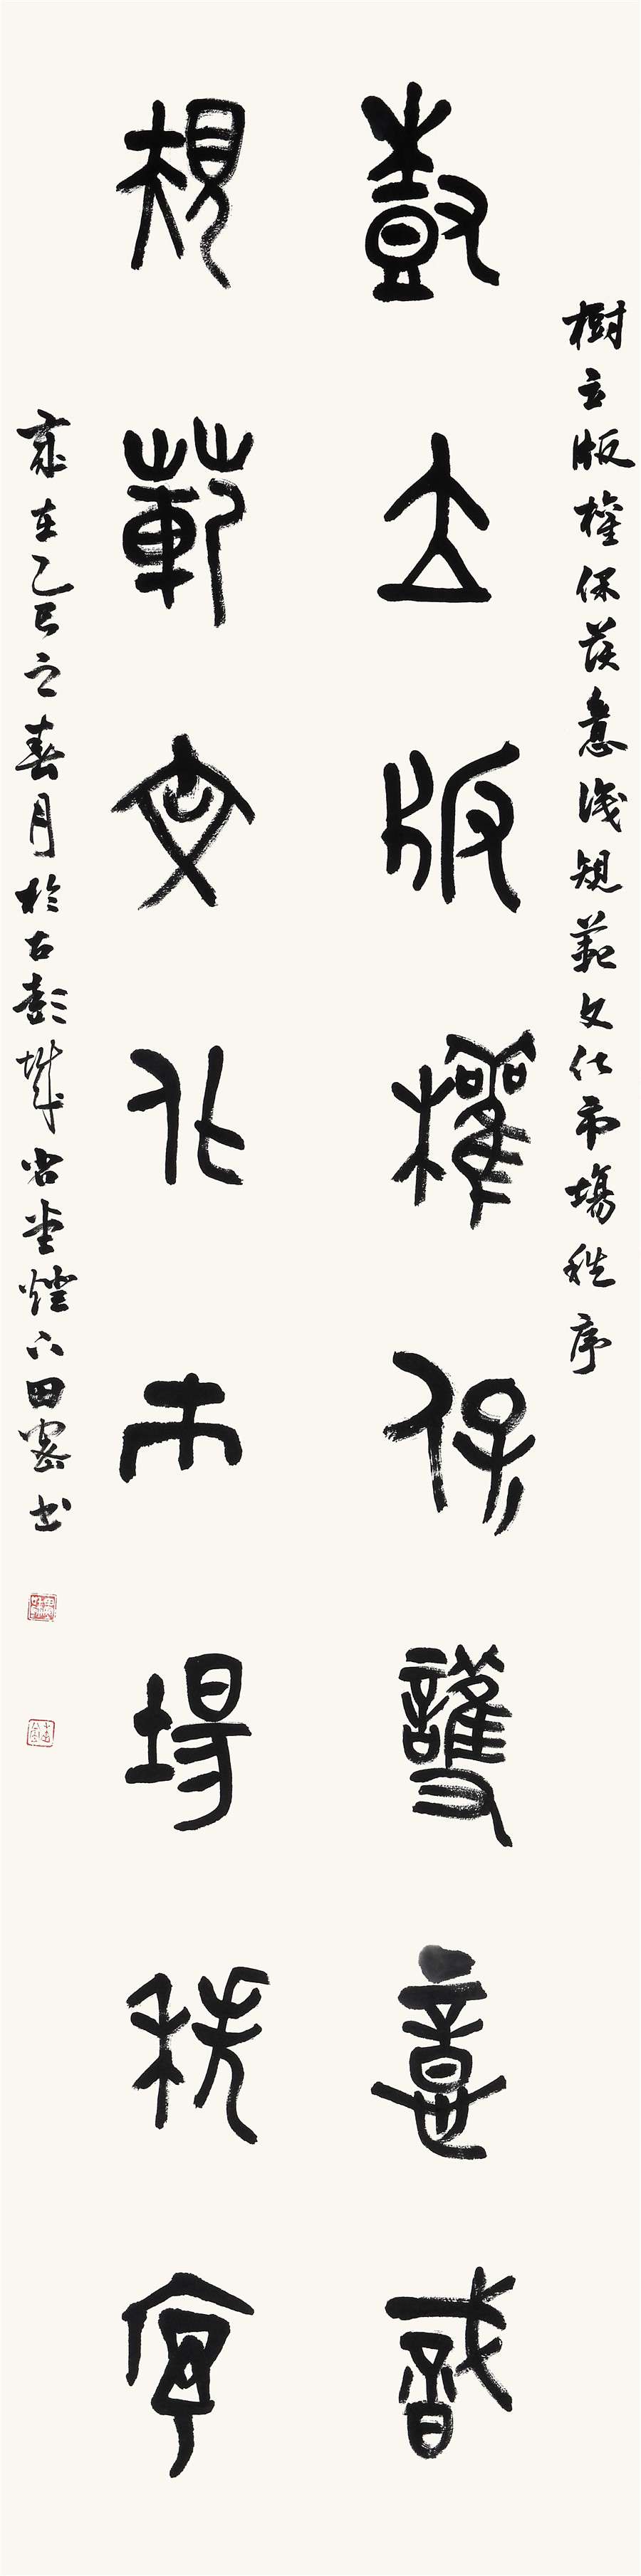 樹立版權保護意識規範文化市場秩序
尌立版權保護意識
規範文化市場秩序
歲在乙巳之春月於古彭城岩堂燈下田密书